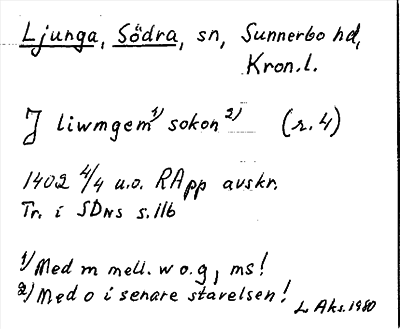 Ljunga, Södra, sn, Sunnerbo hd,
Kron.l.
J liwmgem¹⁾ sokon²⁾ (r.4)
1402 4/4 u.o. RApp avskr.
Tr. i SDns s.11b
1) Med m mell. w o. g, ms!
2) Med o i senare stavelsen!
L Aks. 1980